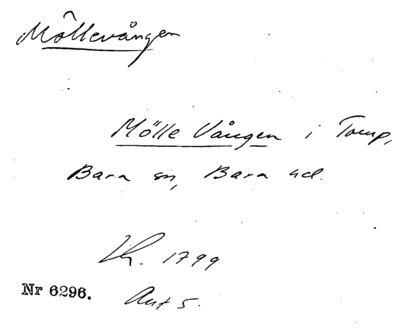 Möllevången
Mölle Vången i Torup,
Bara sn, Bara hd.
Lk. 1799
Nr 6296. Akt 5.